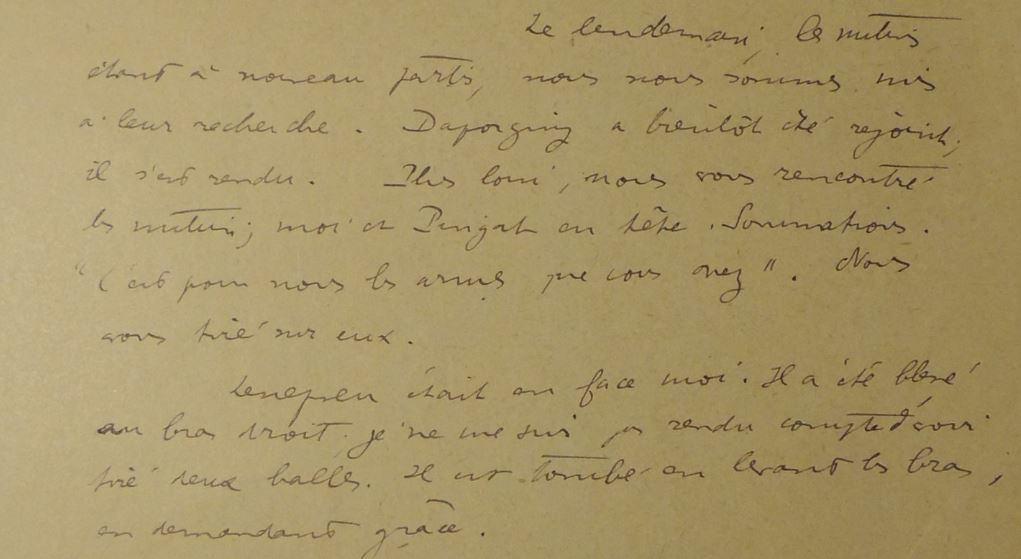 Le lendemain, les mutins
étant à nouveau partis, nous nous sommes mis
à leur recherche. Daporging a bientôt été rejoint,
il s'est rendu. Plus loin, nous avons rencontré
les mutins; moi et Pungat en tête. Sommations.
"C'est pour nous les armes que vous avez". Nous
avons tiré sur eux.
était en face moi. Il a été blessé
au bras droit, je ne me suis pas rendu compte d'avoir
tiré deux balles. Il est tombé en levant les bras,
en demandant grâce.